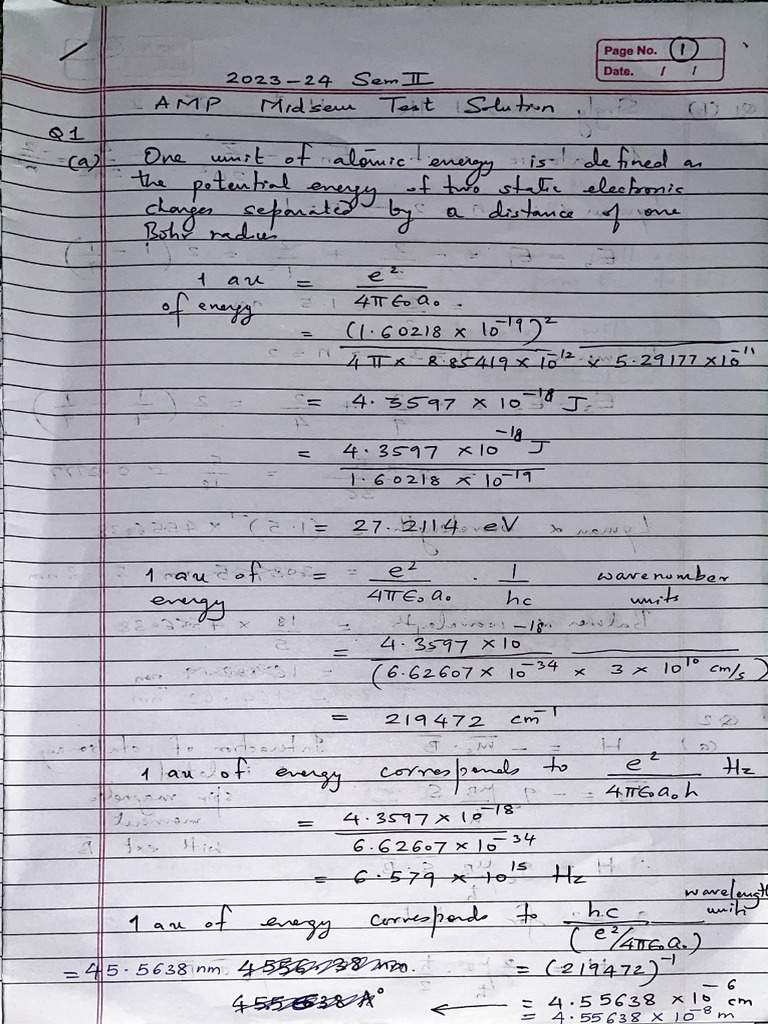 Page No. 1
Date. / /
2023-24 Sem II
AMP Midsem Test Solution.
Q1
(a) One unit of atomic energy is defined as
the potential energy of two static electronic
charges separated by a distance of one
Bohr radius
1 au of energy = e² / 4πε₀a₀.
= (1.60218 × 10⁻¹⁹)² / 4π × 8.85419 × 10⁻¹² × 5.29177 × 10⁻¹¹
= 4.3597 × 10⁻¹⁸ J
= 4.3597 × 10⁻¹⁸ J / 1.60218 × 10⁻¹⁹
= 27.2114 eV
1 au of energy = e² / 4πε₀a₀ · 1 / hc wavenumber units
= 4.3597 × 10⁻¹⁸ / (6.62607 × 10⁻³⁴ × 3 × 10¹⁰ cm/s)
= 219472 cm⁻¹
1 au of energy corresponds to e² / 4πε₀a₀h Hz
= 4.3597 × 10⁻¹⁸ / 6.62607 × 10⁻³⁴
= 6.579 × 10¹⁵ Hz
1 au of energy corresponds to hc / (e²/4πε₀a₀) wavelength units
= 45.5638 nm = (219472)⁻¹
← = 4.55638 × 10⁻⁶ cm
= 4.55638 × 10⁻⁸ m